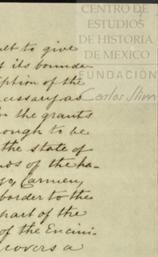 CENTRO DE
ESTUDIOS
DE HISTORIA
DE MEXICO
FUNDACIÓN
Carlos Slim
ult to give
t its bounda-
iption of the
cessary as
n the grants
ough to be
the state of
nds of the ha-
Carmen,
border to the
part of the
of the Encini-
covers a